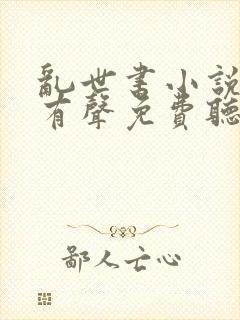 亂世書小說
有聲免費聽
鄙人亡心